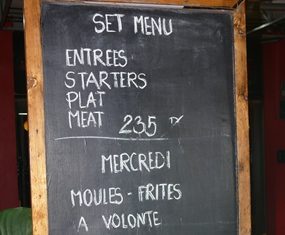 SET MENU
ENTREES
STARTERS
PLAT
MEAT 235
MERCREDI
MOULES - FRITES
A VOLONTE